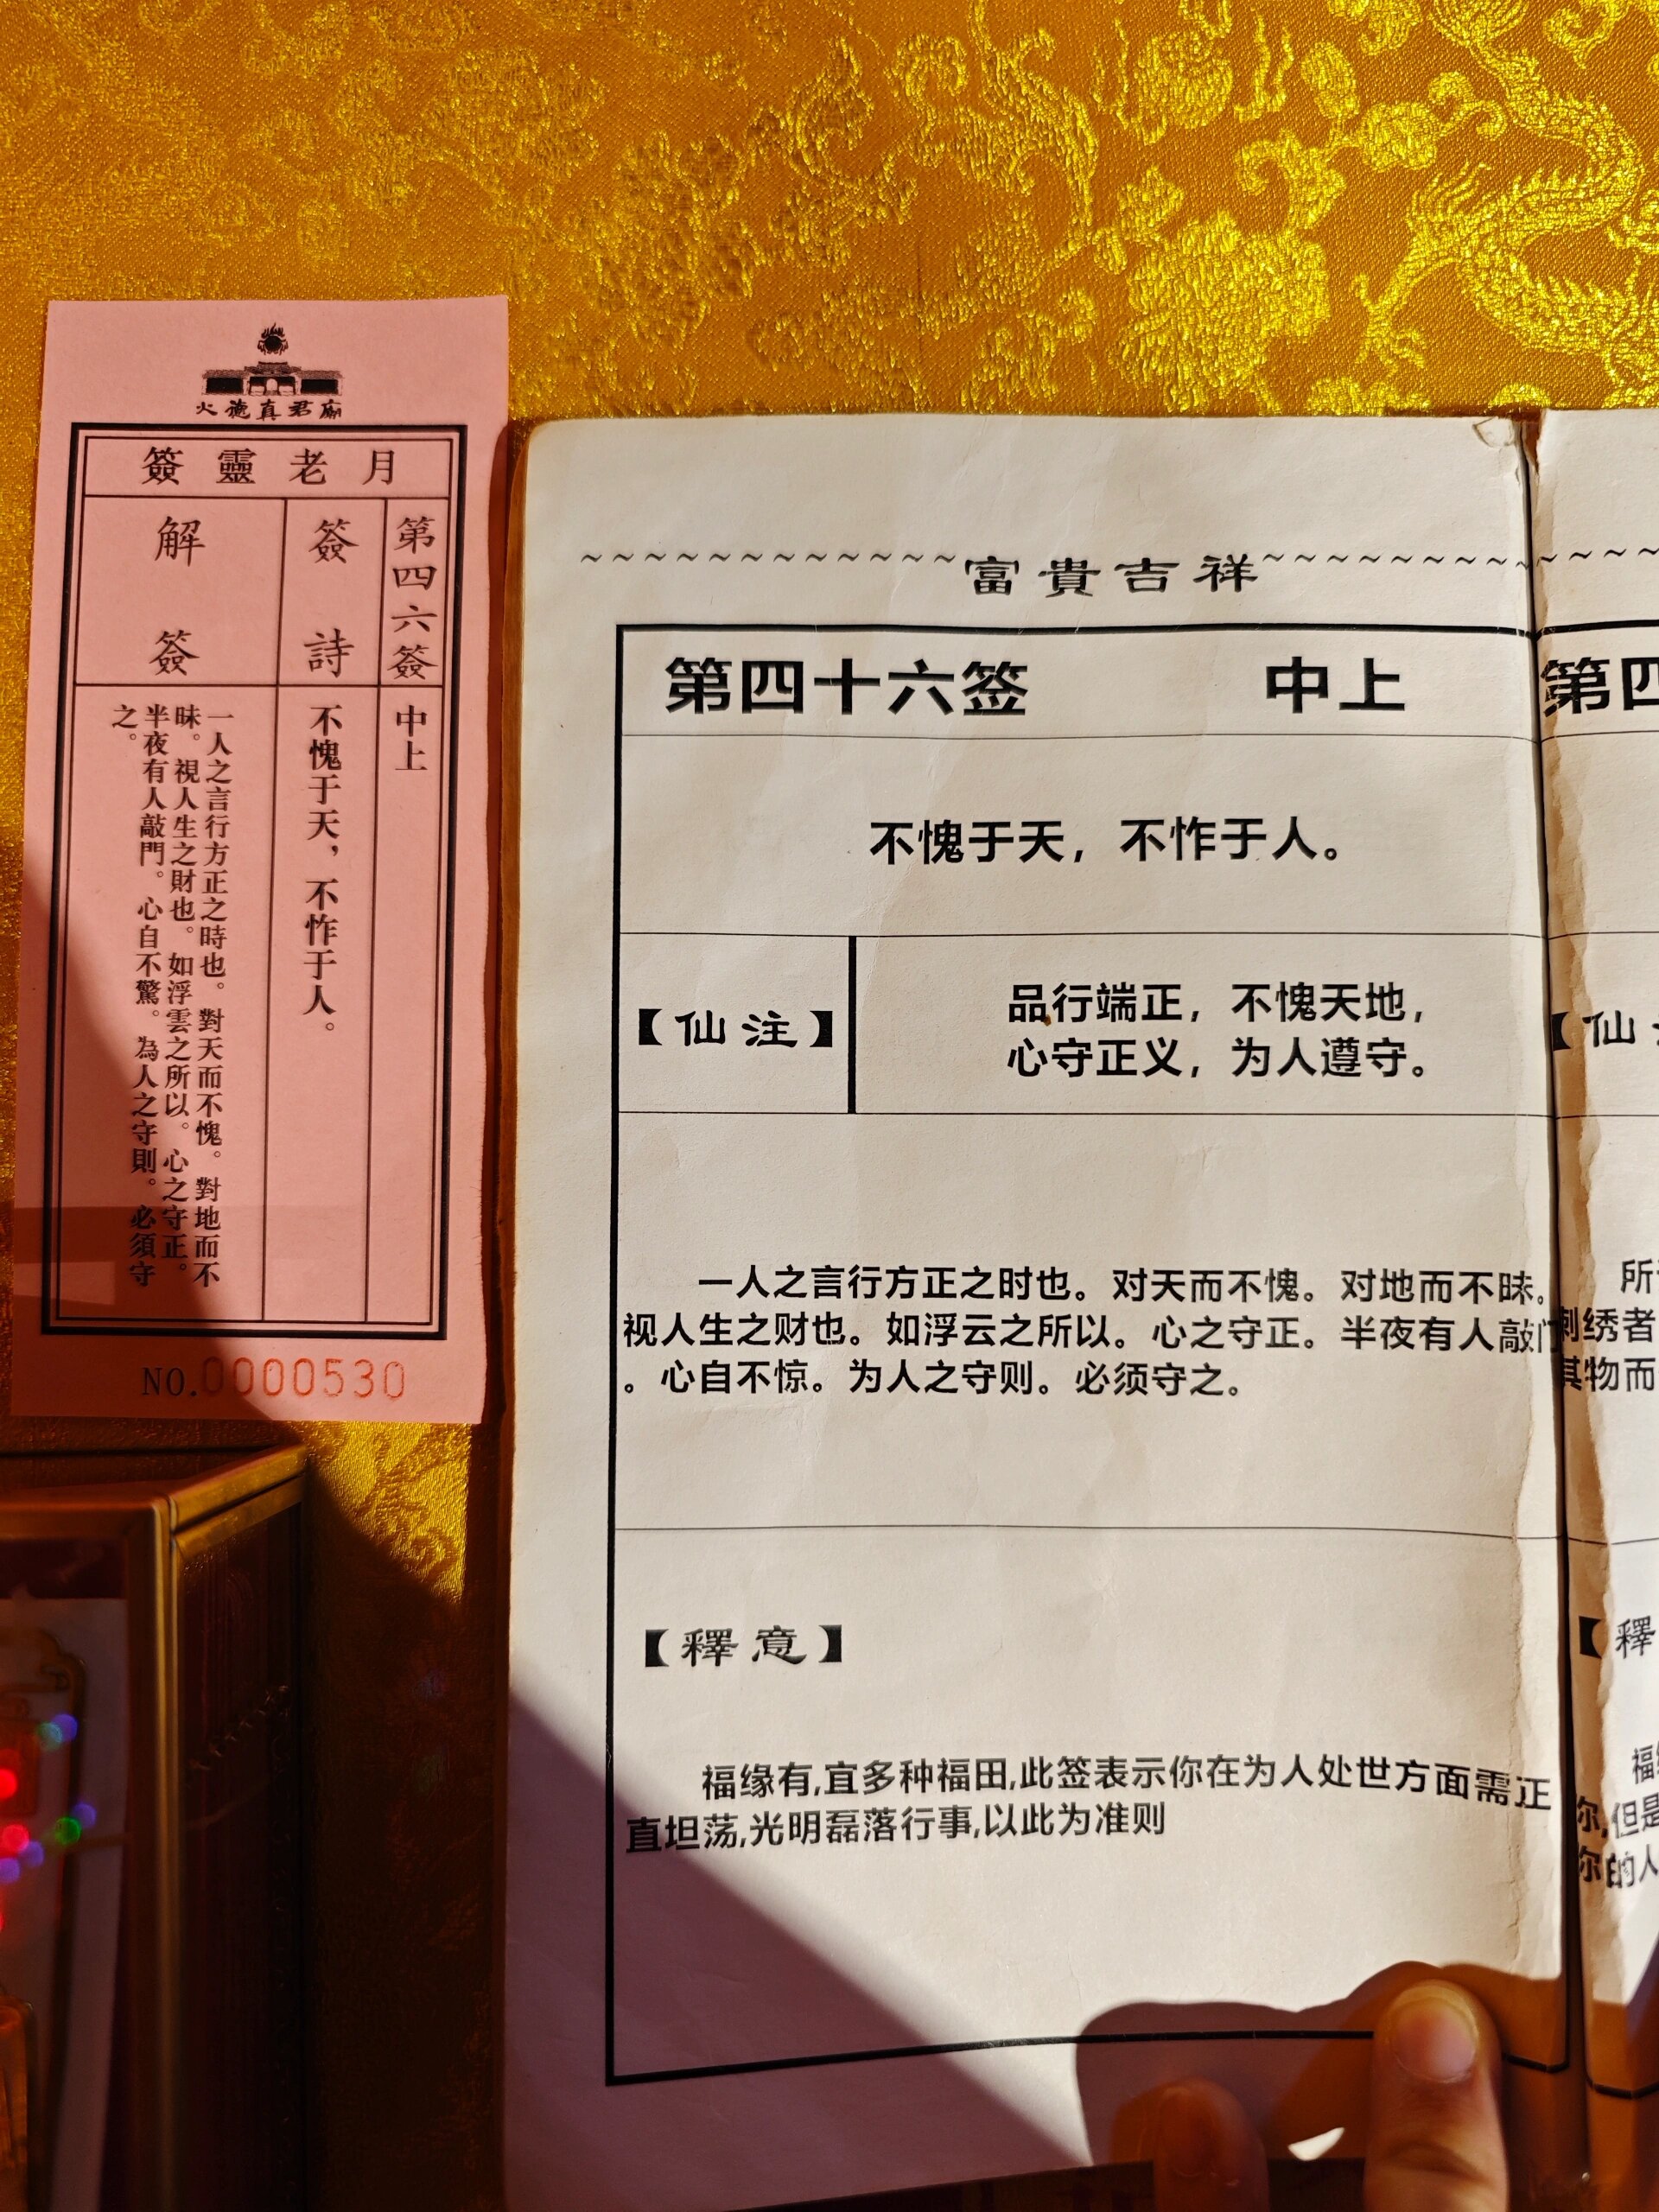 火德真君廟
月老靈簽
第四六簽
中上
簽詩
不愧于天，不怍于人。
解簽
一人之言行方正之時也。對天而不愧。對地而不
昧。視人生之財也。如浮雲之所以。心之守正。
半夜有人敲門。心自不驚。為人之守則。必須守
之。
NO.0000530
富貴吉祥
第四十六签 中上
不愧于天，不怍于人。
【仙注】
品行端正，不愧天地，
心守正义，为人遵守。
一人之言行方正之时也。对天而不愧。对地而不昧。
视人生之财也。如浮云之所以。心之守正。半夜有人敲门
。心自不惊。为人之守则。必须守之。
【釋意】
福缘有,宜多种福田,此签表示你在为人处世方面需正
直坦荡,光明磊落行事,以此为准则
第四
【仙
所
刺绣者
其物而
【釋
福
你,但是
你的人